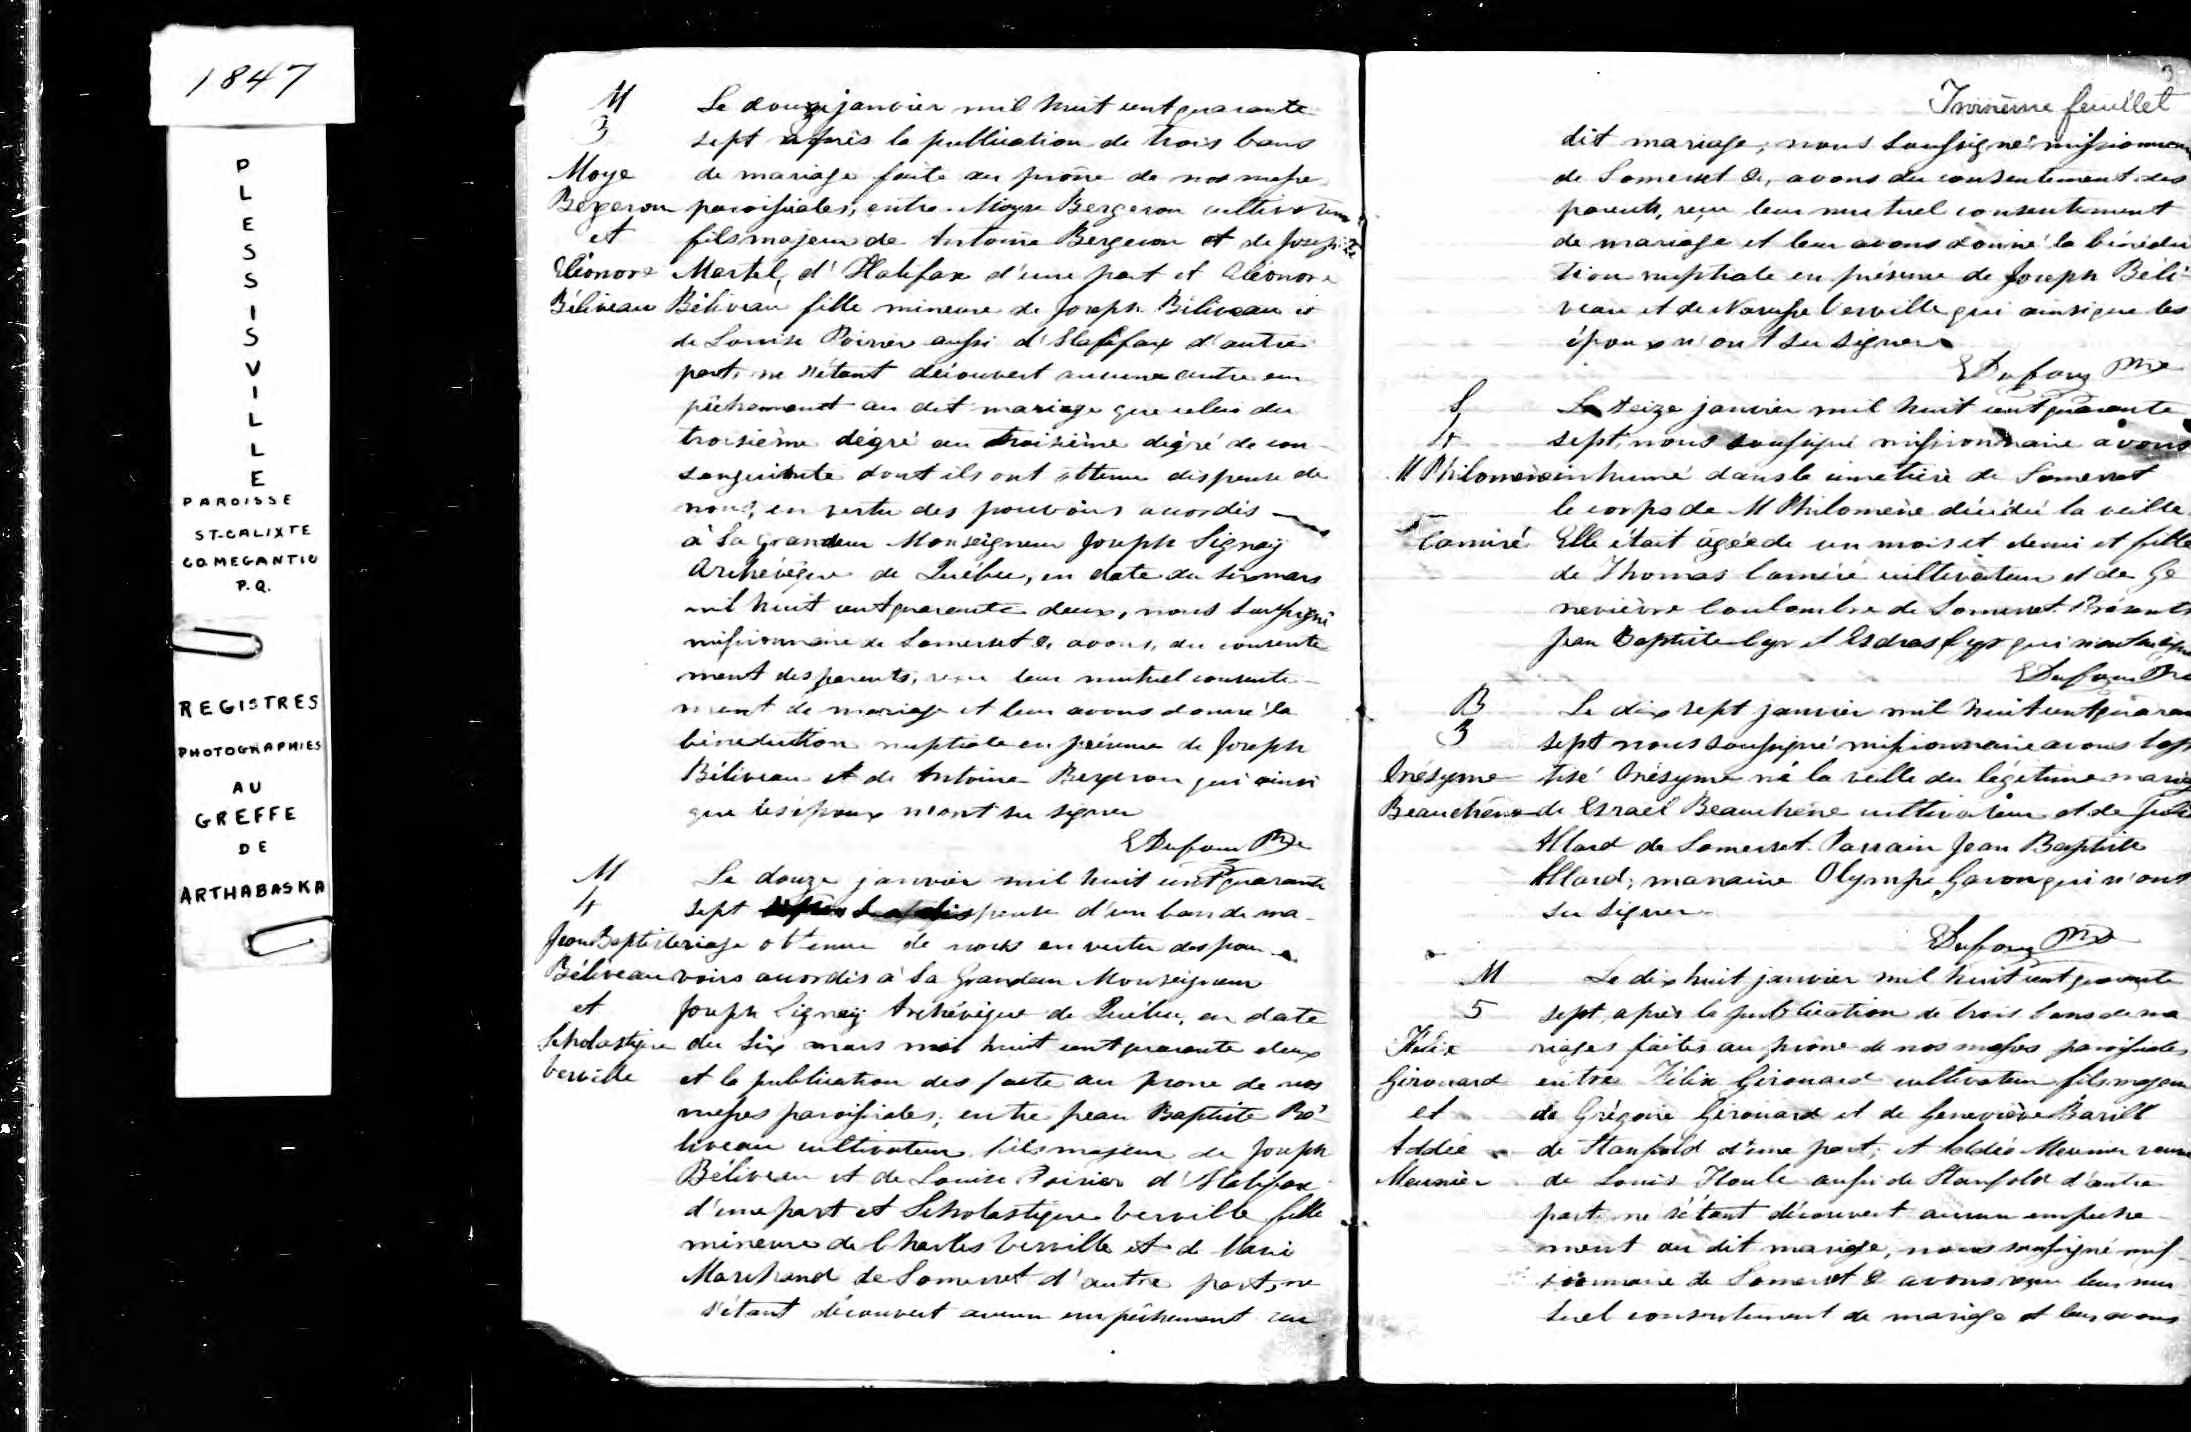 1847
PLESSISVILLE
PAROISSE
ST-CALIXTE
CO. MEGANTIC
P.Q.
REGISTRES
PHOTOGRAPHIES
AU
GREFFE
DE
ARTHABASKA
M
3
Moyse
Bergeron
et
Eléonore
Béliveau
Le douze janvier mil huit cent quarante
sept après la publication de trois bans
de mariage faite au prône de nos messes
paroissiales, entre Moyse Bergeron cultivateur
fils majeur de Antoine Bergeron et de Josephte
Martel, d'Halifax d'une part et Eléonore
Béliveau fille mineure de Joseph Béliveau et
de Louise Poirier aussi d'Halifax d'autre
part, ne s'étant découvert aucun autre em
pêchement au dit mariage que celui du
troisième dégré au troisième dégré de con-
sanguinité dont ils ont obtenu dispense de
nous, en vertu des pouvoirs accordés
à Sa Grandeur Monseigneur Joseph Signaÿ
Archévêque de Québec, en date du six mars
mil huit cent quarante deux, nous soussigné
missionnaire de Somerset &, avons, du consente
ment des parents, reçu leur mutuel consente-
ment de mariage et leur avons donné la
bénédiction nuptiale en présence de Joseph
Béliveau et de Antoine Bergeron qui ainsi
que les époux n'ont su signer
EDufour Ptre
M
4
Jean Baptiste
Béliveau
et
Scholastique
Verville
Le douze janvier mil huit cent quarante
sept dispense d'un ban de ma-
riage obtenue de nous en vertu des pou
voirs accordés à Sa Grandeur Monseigneur
Joseph Signaÿ Archévêque de Québec, en date
du six mars mil huit cent quarante deux
et la publication des faite au prone de nos
messes paroissiales, entre Jean Baptiste Bé
liveau cultivateur fils majeur de Joseph
Béliveau et de Louise Poirier d'Halifax
d'une part et Scholastique Verville fille
mineure de Charles Verville et de Marie
Marchand de Somerset d'autre part, ne
s'étant découvert aucun empêchement au
3
Troisième feuillet
dit mariage, nous soussigné missionnaire
de Somerset &, avons du consentement des
parents, reçu leur mutuel consentement
de mariage et leur avons donné la bénédic
tion nuptiale en présence de Joseph Béli-
veau et de Narcisse Verville qui ainsi que les
époux n'ont su signer
EDufour Ptre
S
4
M Philomène
Camiré
Le seize janvier mil huit cent quarante
sept, nous soussigné missionnaire avons
inhumé dans le cimetière de Somerset
le corps de M Philomène décédée la veille
Elle était âgée de un mois et demi et fille
de Thomas Camiré cultivateur et de Ge
neviève Coulombre de Somerset. Présents
Jean Baptiste Cyr et Esdras Cyr qui n'ont su signer
EDufour Ptre
B
3
Onésyme
Beauchène
Le dix sept janvier mil huit cent quaran
sept nous soussigné missionnaire avons bap
tisé Onésyme né la veille du légitime mariage
de Israël Beauchène cultivateur et de Julie
Allard de Somerset. Parrain Jean Baptiste
Allard; marraine Olympe Gavon qui n'ont
su signer
EDufour Ptre
M
5
Félix
Girouard
et
Addée
Meunier
Le dix huit janvier mil huit cent quarante
sept, après la publication de trois bans de ma
riages faites au prône de nos messes paroissiales
entre Félix Girouard cultivateur fils majeur
de Grégoire Girouard et de Geneviève Barill
de Stanfold d'une part; et Addée Meunier veuve
de Louis Houle aussi de Stanfold d'autre
part, ne s'étant découvert aucun empêche-
ment au dit mariage, nous soussigné mis-
sionnaire de Somerset & avons reçu leur mu
tuel consentement de mariage et leur avons